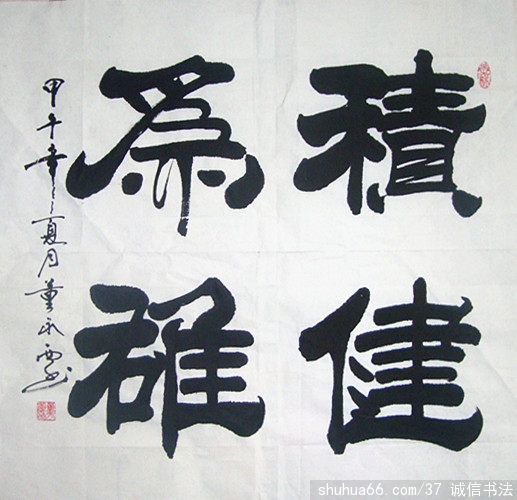 積健
為雄
甲午年夏月董永西书
shuhua66.com/37 诚信书法